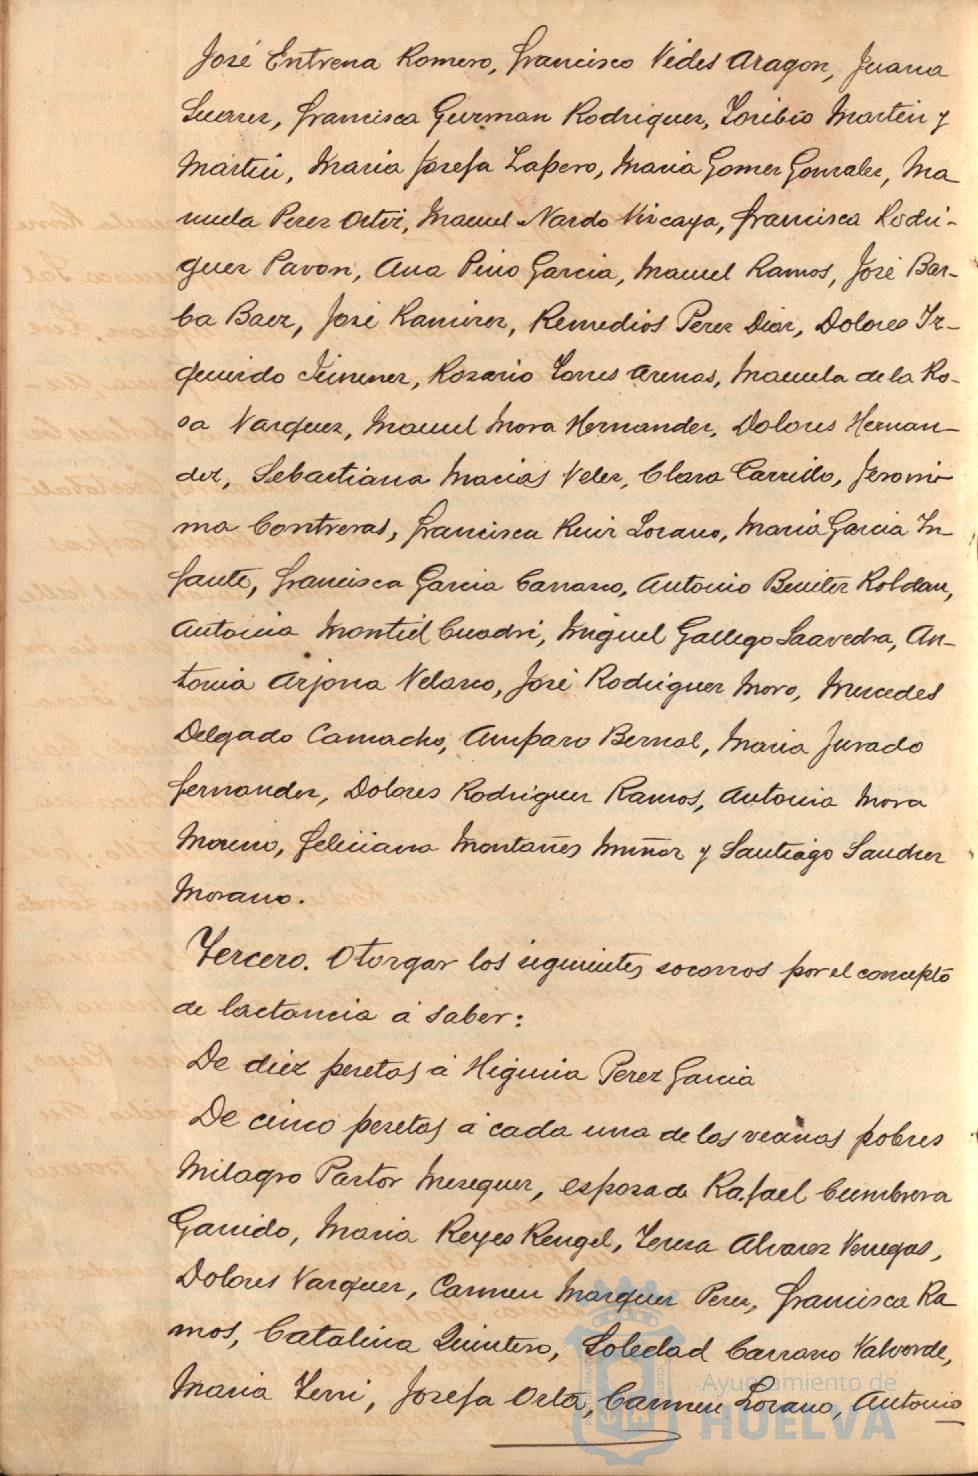 José Entrena Romero, Francisco Vides Aragon, Juana
Suarez, Francisca Guzman Rodriguez, Toribio Martin y
Martin, Maria Josefa Zapero, Maria Gomez Gonzalez, Ma
nuela Perez Ortiz, Manuel Nardo Vizcaya, Francisca Rodri-
guez Pavon, Ana Pino Garcia, Manuel Ramos, José Bar-
ba Baez, José Ramirez, Remedios Perez Diaz, Dolores Iz-
quierdo Jimenez, Rosario Torres Arenas, Manuela de la Ro-
sa Vazquez, Manuel Mora Hernandez, Dolores Hernan-
dez, Sebastiana Macias Velez, Clara Carrillo, Jeroni-
ma Contreras, Francisca Ruiz Lozano, Maria Garcia In-
fante, Francisca Garcia Carrasco, Antonio Benitez Roldan,
Antonia Montiel Cuadri, Miguel Gallego Saavedra, An-
tonia Arjona Velasco, José Rodriguez Moro, Mercedes
Delgado Camacho, Amparo Bernal, Maria Jurado
Fernandez, Dolores Rodriguez Ramos, Antonia Mora
Moreno, Feliciana Montañes Muñoz y Santiago Sanchez
Morano.
Tercero. Otorgar los siguientes socorros por el concepto
de lactancia á saber:
De diez pesetas á Higinia Perez Garcia
De cinco pesetas á cada una de las vecinas pobres
Milagro Pastor Meseguer, esposa de Rafael Cumbrera
Garrido, Maria Reyes Rengel, Teresa Alvarez Venegas,
Dolores Vazquez, Carmen Marquez Perez, Francisca Ra
mos, Catalina Quintero, Soledad Carrasco Valverde,
Maria Terri, Josefa Orta, Carmen Lozano, Antonio
Ayuntamiento de
HUELVA